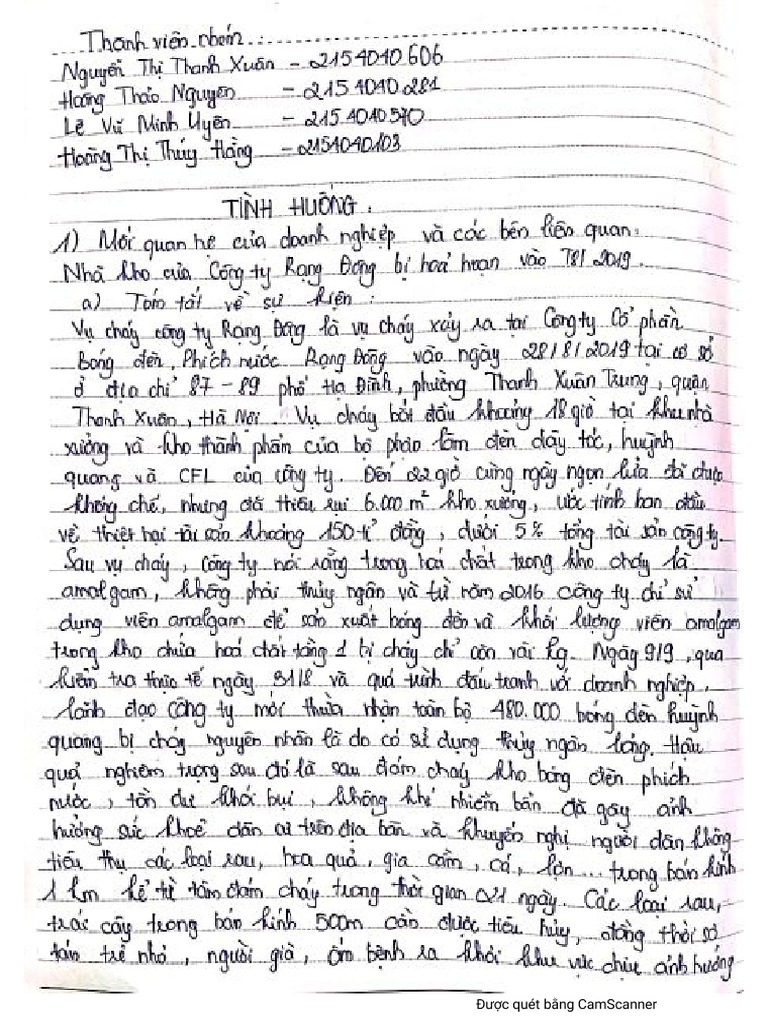 Thành viên nhóm :
Nguyễn Thị Thanh Xuân - 2154040606
Hoàng Thảo Nguyên - 2154040281
Lê Vũ Minh Uyên - 2154040570
Hoàng Thị Thúy Hằng - 2154040103
TÌNH HUỐNG :
1) Mối quan hệ của doanh nghiệp và các bên liên quan:
Nhà kho của Công ty Rạng Đông bị hoả hoạn vào T8/2019.
a) Tóm tắt về sự kiện :
Vụ cháy công ty Rạng Đông là vụ cháy xảy ra tại Công ty Cổ phần
Bóng đèn, Phích nước Rạng Đông vào ngày 28/8/2019 tại cơ sở
ở địa chỉ 87-89 phố Hạ Đình, phường Thanh Xuân Trung, quận
Thanh Xuân, Hà Nội. Vụ cháy bắt đầu khoảng 18 giờ tại khu nhà
xưởng và kho thành phần của bộ phận làm đèn dây tóc, huỳnh
quang và CFL của công ty. Đến 22 giờ cùng ngày ngọn lửa đã được
khống chế, nhưng đã thiêu rụi 6.000 m² kho xưởng, ước tính ban đầu
về thiệt hại tài sản khoảng 150 tỉ đồng, dưới 5% tổng tài sản công ty.
Sau vụ cháy, công ty nói rằng trong hoá chất trong kho cháy là
amalgam, không phải thủy ngân và từ năm 2016 công ty chỉ sử
dụng viên amalgam để sản xuất bóng đèn và khối lượng viên amalgam
trong kho chứa hoá chất tầng 1 bị cháy chỉ còn vài kg. Ngày 9/9, qua
kiểm tra thực tế ngày 31/8 và quá trình đấu tranh với doanh nghiệp,
lãnh đạo công ty mới thừa nhận toàn bộ 480.000 bóng đèn huỳnh
quang bị cháy nguyên nhân là do có sử dụng thủy ngân lỏng. Hậu
quả nghiêm trọng sau đó là sau đám cháy kho bóng đèn phích
nước, tồn dư khói bụi, không khí nhiễm bẩn đã gây ảnh
hưởng sức khoẻ dân cư trên địa bàn và khuyến nghị người dân không
tiêu thụ các loại rau, hoa quả, gia cầm, cá, lợn ... trong bán kính
1 km kể từ tâm đám cháy trong thời gian 21 ngày. Các loại rau,
trái cây trong bán kính 500m cần được tiêu hủy, đồng thời sơ
tán trẻ nhỏ, người già, ốm bệnh ra khỏi khu vực chịu ảnh hưởng
Được quét bằng CamScanner